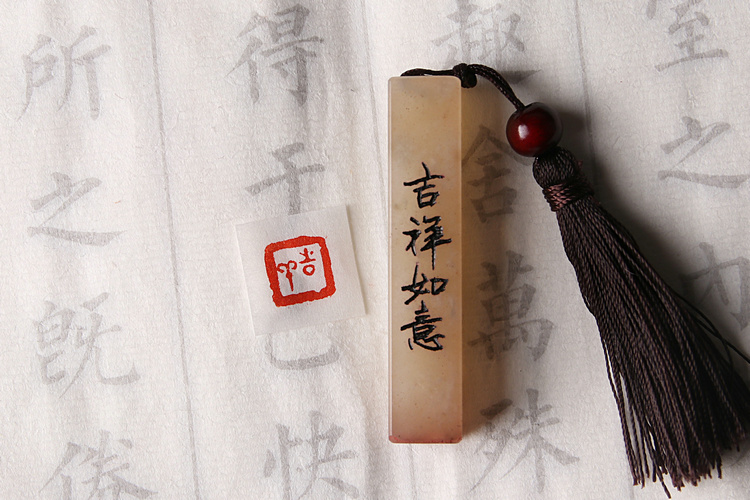 吉祥如意
室之
趣舍萬殊
得于己快
所之既倦
吉